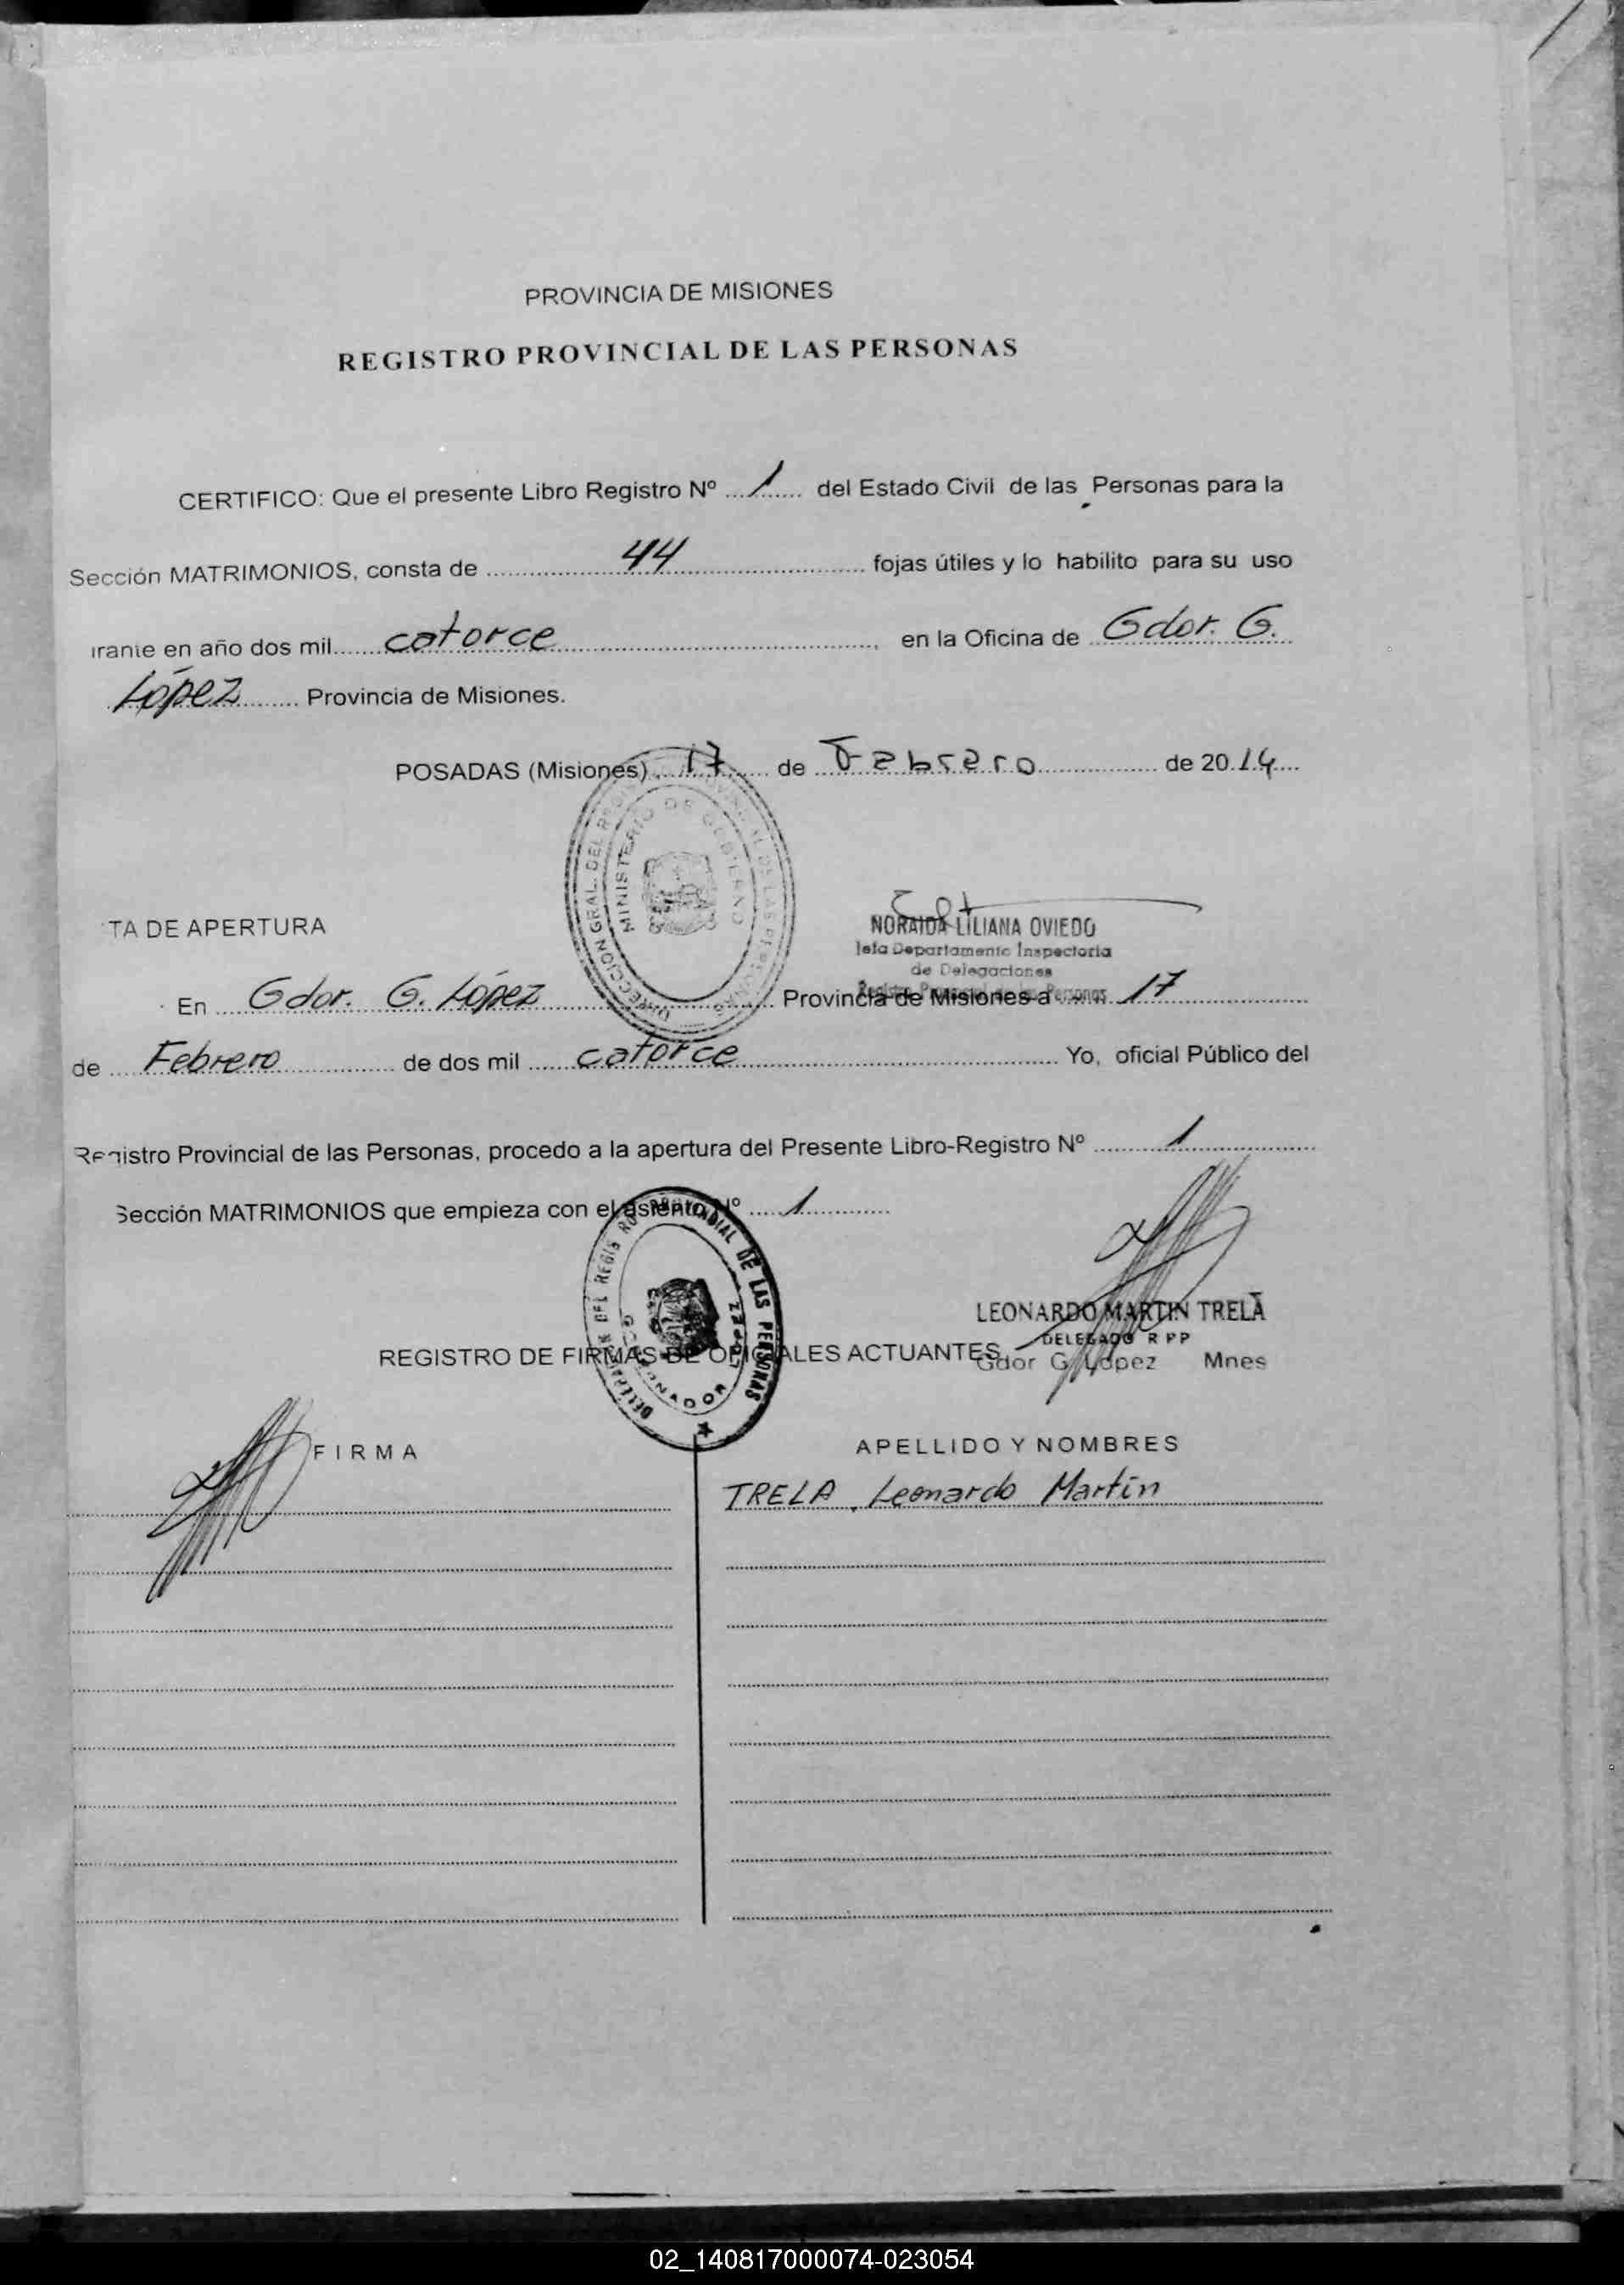 PROVINCIA DE MISIONES
REGISTRO PROVINCIAL DE LAS PERSONAS
CERTIFICO: Que el presente Libro Registro Nº 1 del Estado Civil de las Personas para la
Sección MATRIMONIOS, consta de 44 fojas útiles y lo habilito para su uso
irante en año dos mil catorce, en la Oficina de Gdor. G.
López Provincia de Misiones.
POSADAS (Misiones), 17 de Febrero de 2014
DIRECCION GRAL. DEL REGISTRO PROVINCIAL DE LAS PERSONAS
MINISTERIO DE GOBIERNO
TA DE APERTURA
NORAIDA LILIANA OVIEDO
Jefa Departamento Inspectoria
de Delegaciones
Registro Provincial de las Personas
En Gdor. G. López Provincia de Misiones a 17
de Febrero de dos mil catorce Yo, oficial Público del
Registro Provincial de las Personas, procedo a la apertura del Presente Libro-Registro Nº 1
Sección MATRIMONIOS que empieza con el asiento Nº 1
DELEGACION DEL REGISTRO PROVINCIAL DE LAS PERSONAS
GOBERNADOR LOPEZ
LEONARDO MARTIN TRELA
DELEGADO R P P
Gdor G. Lopez Mnes
REGISTRO DE FIRMAS DE OFICIALES ACTUANTES
FIRMA
APELLIDO Y NOMBRES
TRELA, Leonardo Martín
02_140817000074-023054